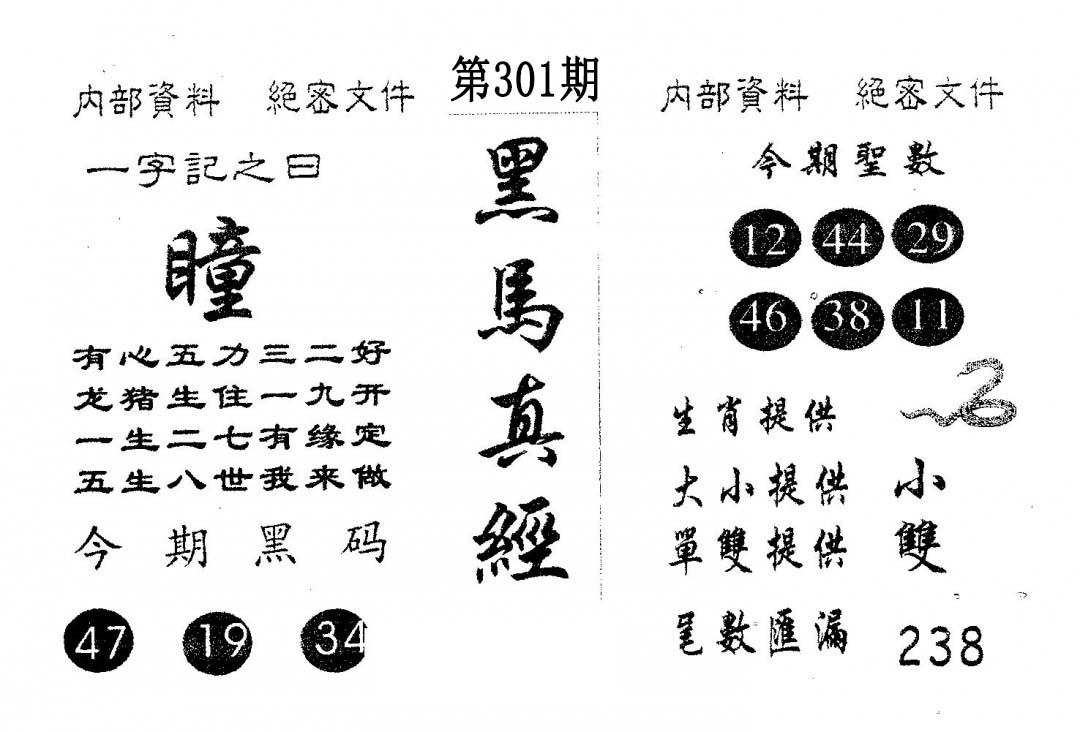 第301期
内部資料 絕密文件
一字記之曰
瞳
有心五力三二好
龙猪生住一九开
一生二七有缘定
五生八世我来做
今期黑码
47 19 34
黑馬真經
内部資料 絕密文件
今期聖數
12 44 29
46 38 11
生肖提供
大小提供 小
單雙提供 雙
尾數匯漏 238